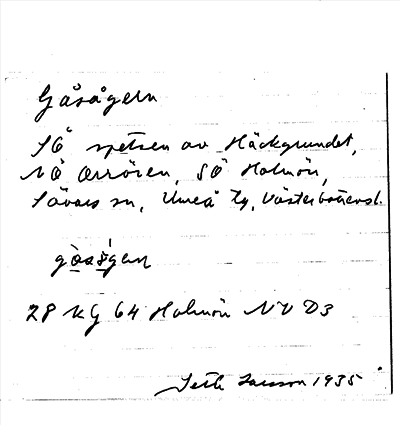 Gåsågern
SÖ spetsen av Häckgrundet,
NÖ Örrören, SÖ Holmön,
Sävars sn, Umeå tg, Västerbottensl.
28 KG 64 Holmön NV D3
Seth Larsson 1935